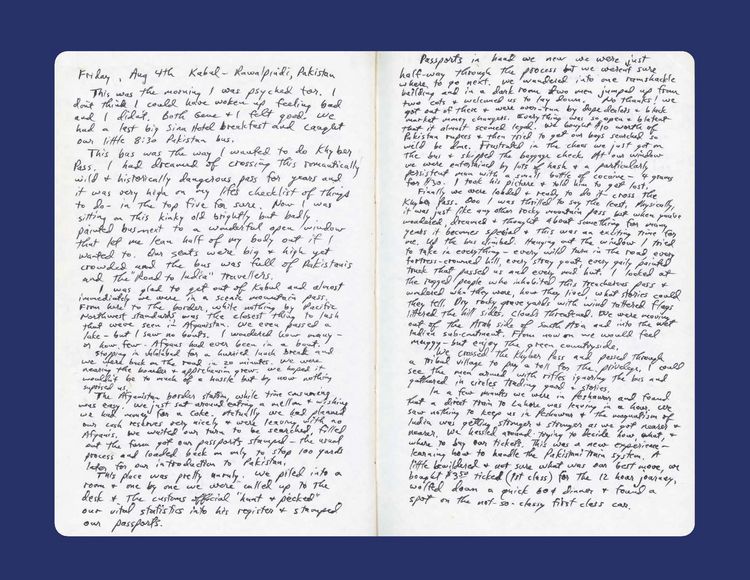 Friday, Aug 4th Kabul - Rawalpindi, Pakistan
This was the morning I was psyched for. I
don't think I could have woken up feeling bad
and I didn't. Both Gene & I felt good. We
had a last big Sina Hotel breakfast and caught
our little 8:30 Pakistan bus.
This bus was the way I wanted to do Khyber
Pass. I had dreamed of crossing this romantically
wild & historically dangerous pass for years and
it was very high on my life's checklist of things
to do - in the top five for sure. Now I was
sitting on this kinky old brightly but badly
painted bus next to a wonderful open window
that let me lean half of my body out if I
wanted to. Our seats were big & high yet
crowded and the bus was full of Pakistanis
and the "Road to India" travellers.
I was glad to get out of Kabul and almost
immediately we were in a scenic mountain pass.
From here to the border, while nothing by Pacific
Northwest standards, was the closest thing to lush
that weve seen in Afganistan. We even passed a
lake - but I saw no boats. I wondered how many -
or how few - Afgans had ever been in a boat.
Stopping in Jelalabad for a hurried lunch break and
we were back on the road in 20 minutes. We were
nearing the border & apprehension grew. We hoped it
wouldn't be to much of a hassle but by now nothing
suprised us.
The Afganistan border station while time consuming
was easy. We just sat around eating a mellon & wishing
we had money for a coke. Actually we had planned
our cash reserves very nicely & were leaving with no
Afganis. We waited our turn to be searched, filled
out the form got our passports stamped - the usual
process and loaded back on only to stop 100 yards
later for our introduction to Pakistan.
This place was pretty unruly. We piled into a
room & one by one we were called up to the
desk & the customs official "hunt & pecked"
our vital statistics into his register & stamped
our passports.
Passports in hand we new we were just
half-way through the process but we weren't sure
where to go next. We wandered into one ramshackle
building and in a dark room two men jumped up from
two cots & welcomed us to lay down. No thanks! we
got out of there & were over-run by dope dealers & black
market money changers. Everything was so open & blatent
that it almost seemed legal. We bought $10 worth of
Pakistan rupees & then tried to get our bags searched so
we'd be done. Frustrated in the chaos we just got on
the bus & skipped the baggage check. At our window
we were entertained by lots of hash & a particularly
persistent man with a small bottle of cocaine - 4 grams
for $30. I took his picture & told him to get lost.
Finally we were loaded & ready to do it - cross the
Khyber Pass. Boo I was thrilled to say the least. Physically
it was just like any other rocky mountain pass but when you've
wondered, dreamed & thought about something for many
years it becomes special & this was an exciting time for
me. Up the bus climbed. Hanging out the window I tried
to take in everything - every wild turn in the road every
fortress-crowned hill, every stray goat, every gaily painted
truck that passed us and every mud hut. I looked at
the rugged people who inhabited this treacherous pass &
wondered who they were, how they lived, what stories could
they tell. Dry rocky grave yards with wind tattered flags
littered the hill sides. Clouds threatened. We were moving
out of the Arab side of South Asia and into the wet
Indian sub-continent. From now on we would feel
muggy - but enjoy the green countryside.
We crossed the Khyber Pass and passed through
a tribal village to pay a toll for the privilege. I could
see the men armed with rifles ignoring the bus and
gathered in circles trading yard & stories.
In a few minutes we were in Peshawar and found
that a direct train to Lahore was leaving in a hour. We
saw nothing to keep us in Peshawar & the magnatism of
India was getting stronger & stronger as we got nearer &
nearer. We hassled around trying to decide how, what, &
where to buy our ticket. This was a new experience -
learning how to handle the Pakistani train system. A
little bewildered & not sure what was our best move, we
bought $3.50 ticket (1st class) for the 12 hour journey,
wolfed down a quick 60¢ dinner & found a
spot on the not-so-classy first class car.